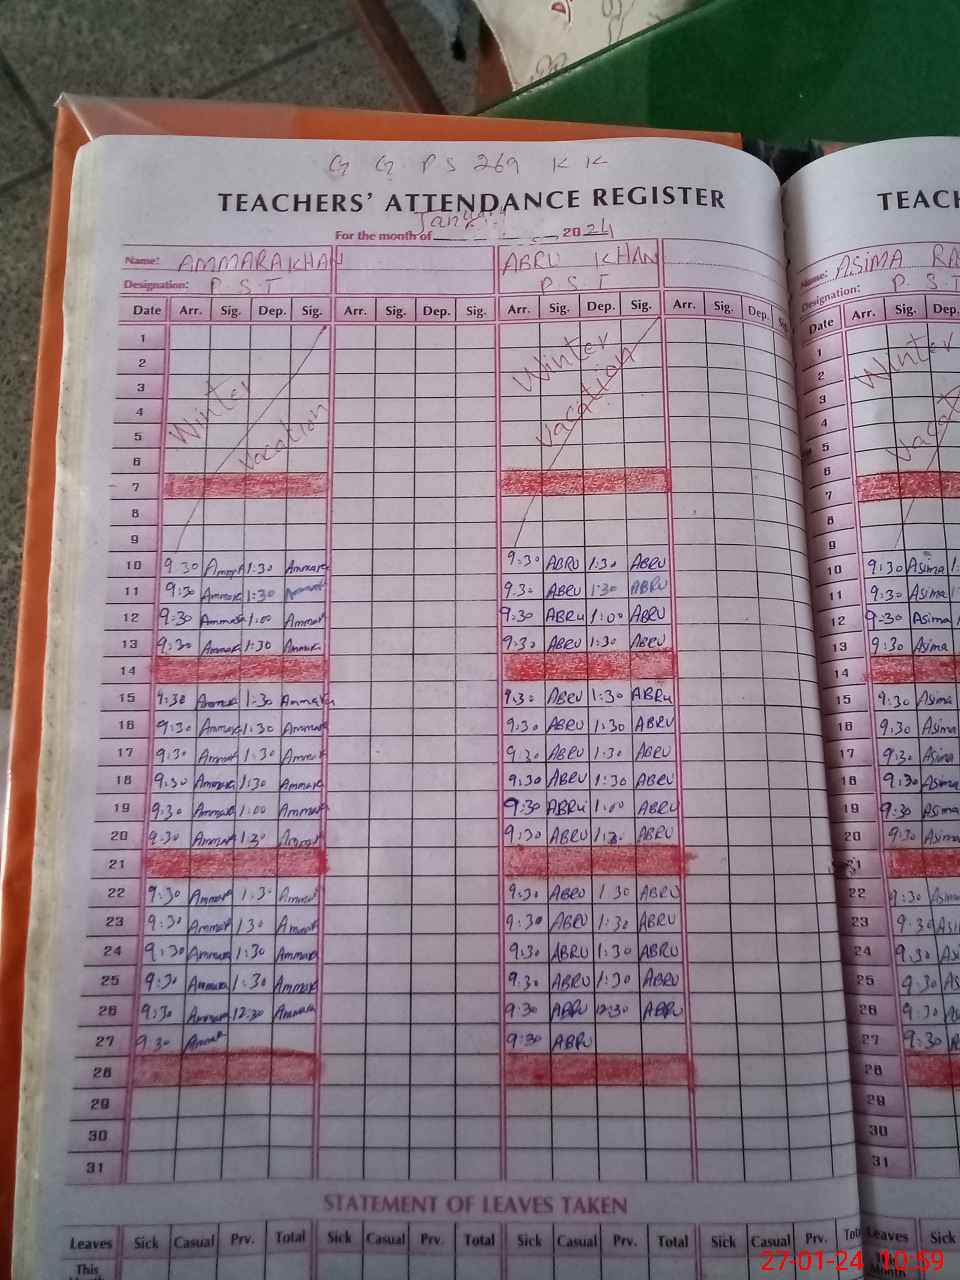 G G P S 269 K K
TEACHERS' ATTENDANCE REGISTER
For the month of January 2024
Name: AMMARA KHAN ABRU KHAN
Designation: P.S.T P.S.T
Date Arr. Sig. Dep. Sig. Arr. Sig. Dep. Sig. Arr. Sig. Dep. Sig. Arr. Sig. Dep.
1
2
3
4
5
6
Winter Vacation Winter Vacation
7
8
9
10 9:30 Ammara 1:30 Ammara 9:30 ABRU 1:30 ABRU
11 9:30 Ammara 1:30 Ammara 9:30 ABRU 1:30 ABRU
12 9:30 Ammara 1:00 Ammara 9:30 ABRU 1:00 ABRU
13 9:30 Ammara 1:30 Ammara 9:30 ABRU 1:30 ABRU
14
15 9:30 Ammara 1:30 Ammara 9:30 ABRU 1:30 ABRU
16 9:30 Ammara 1:30 Ammara 9:30 ABRU 1:30 ABRU
17 9:30 Ammara 1:30 Ammara 9:30 ABRU 1:30 ABRU
18 9:30 Ammara 1:30 Ammara 9:30 ABRU 1:30 ABRU
19 9:30 Ammara 1:00 Ammara 9:30 ABRU 1:00 ABRU
20 9:30 Ammara 1:30 Ammara 9:30 ABRU 1:30 ABRU
21
22 9:30 Ammara 1:30 Ammara 9:30 ABRU 1 30 ABRU
23 9:30 Ammara 1 30 Ammara 9:30 ABRU 1:30 ABRU
24 9:30 Ammara 1:30 Ammara 9:30 ABRU 1:30 ABRU
25 9:30 Ammara 1:30 Ammara 9:30 ABRU 1:30 ABRU
26 9:30 Ammara 12:30 Ammara 9:30 ABRU 12:30 ABRU
27 9:30 Ammara 9:30 ABRU
28
29
30
31
STATEMENT OF LEAVES TAKEN
Leaves Sick Casual Prv. Total Sick Casual Prv. Total Sick Casual Prv. Total Sick Casual Prv.
This
TEACH
Name: ASIMA
Designation: P.S.T
Date Arr. Sig. Dep.
1
2
3
4
5
6
Winter
7
8
9
10 9:30 Asima
11 9:30 Asima
12 9:30 Asima
13 9:30 Asima
14
15 9:30 Asima
16 9:30 Asima
17 9:30 Asima
18 9:30 Asima
19 9:30 Asima
20 9:30 Asima
21
22 9:30 Asima
23 9:30
24 9:30
25 9:30
26 9:30
27 9:30
28
29
30
31
Leaves Sick
27-01-24 10:59